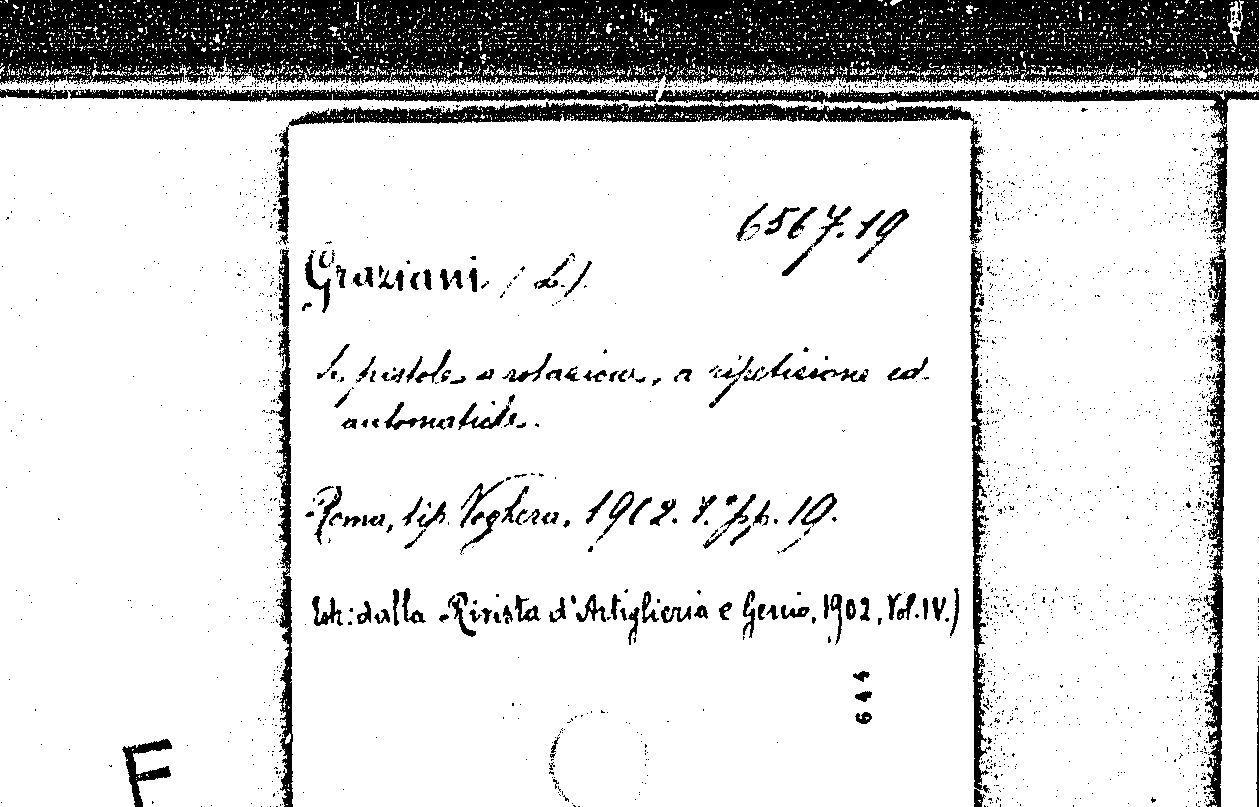 6567.19
Graziani (L.)
Le pistole a rotazione, a ripetizione ed
automatiche.
Roma, tip. Voghera, 1902. 8.° pp. 19.
Estr: dalla Rivista d'Artiglieria e Genio, 1902, Vol. IV.)
644
F